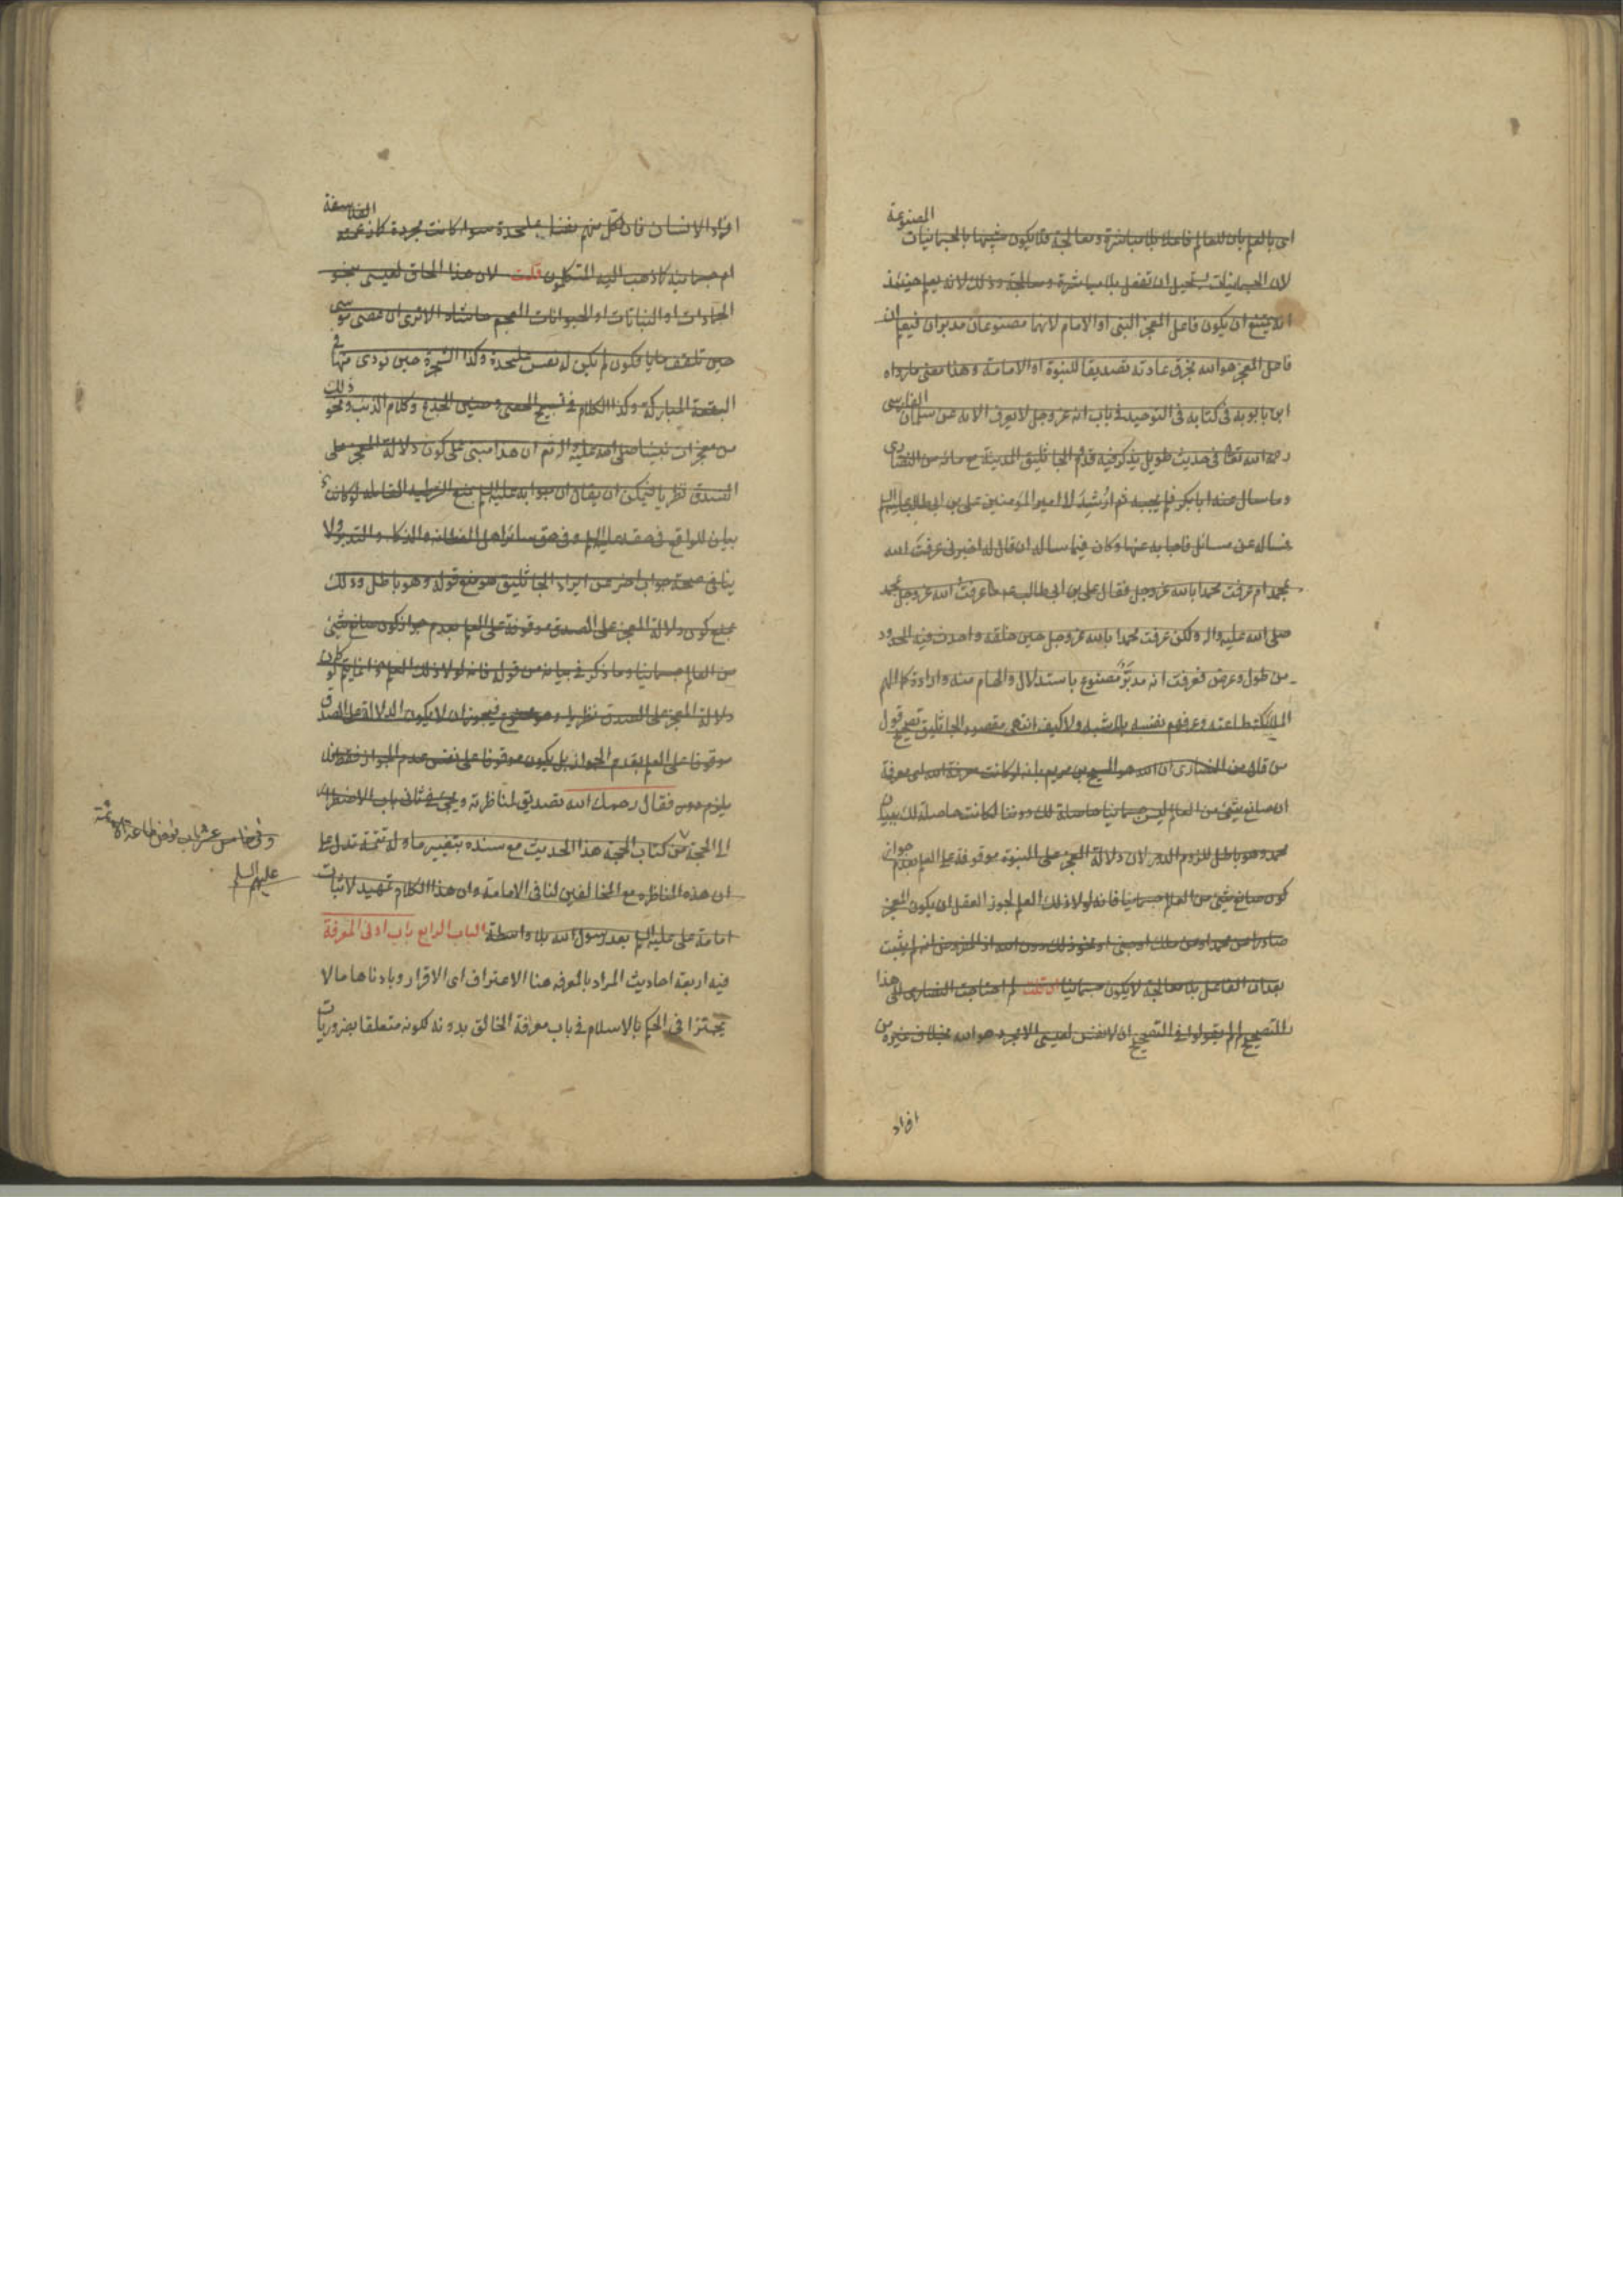 اى بالعلم بان للعالم فاعلا بلا مباشرة ومعالجة فلا يكون شبيها بالجسمانيات المصنوعة
لان الجسمانيات يستحيل ان تفعل بلا مباشرة ومعالجة وذلك لانه يعلم حينئذ
انه يمتنع ان يكون فاعل المعجز النبى او الامام لانهما مصنوعان مدبران فيعلم ان
فاعل المعجز هو الله بخرق عادته تصديقا للنبوة او الامامة وهذا معنى ما رواه
ابن بابويه فى كتابه فى التوحيد فى باب انه عز وجل لا يعرف الا به عن سلمان الفارسى
رحمه الله تعالى فى حديث طويل يذكر فيه قدوم الجاثليق المدينة مع مائة من النصارى
وما سال عنه ابا بكر فلم يجبه ثم ارشد الى امير المؤمنين على بن ابى طالب عليه السلم
فساله عن مسائل فاجابه عنها وكان فيما ساله ان قال له اخبرنى عرفت الله
بمحمد ام عرفت محمدا بالله عز وجل فقال على بن ابى طالب ع ما عرفت الله عز وجل بمحمد
صلى الله عليه واله ولكن عرفت محمدا بالله عز وجل حين خلقه واحدث فيه الحدود
من طول وعرض فعرفت انه مدبر مصنوع باستدلال والهام منه وارادة كما الهم
الملائكة طاعته وعرفهم نفسه بلا شبه ولا كيف انتهى مقصود الجاثليق تصحيح قول
من قال من النصارى ان الله هو المسيح بن مريم بانه لو كانت معرفة الله اى معرفة
ان صانع شىء من العالم ليس جسمانيا حاصلة لك دوننا لكانت حاصلة لك ببيان
محمد وهو باطل للزوم الدور لان دلالة المعجز على النبوة موقوفة على العلم بعدم جواز
كون صانع شىء من العالم جسمانيا فانه لولا ذلك العلم لجوز العقل ان يكون المعجز
صادرا من محمد او من ملك او جنى او نحو ذلك دون الله اذ المفروض انه لم يثبت
بعد ان الفاعل بلا معالجة لا يكون جسمانيا ان قلت لم احتاجت النصارى الى هذا
التصحيح لم لم يقولوا فى التصحيح ان لا نفس لعيسى الا مجرد هو الله بخلاف غيره من
افراد
افراد الانسان فان لكل منهم نفسا على حدة سواء كانت مجردة كما زعمته الفلاسفة
ام جسمانية كما ذهب اليه المتكلمون قلت لان هذا الحاق لعيسى بنحو
الجمادات او النباتات او الحيوانات العجم حاشاه الا ترى ان عصى موسى
حين تلقف ما يافكون لم يكن له نفس على حدة وكذا الشجرة حين نودى منها فى
البقعة المباركة وكذا الكلام فى تسبيح الحصى وحنين الجذع وكلام الذئب ونحو ذلك
من معجزات نبينا صلى الله عليه واله ثم ان هذا مبنى على كون دلالة المعجز على
الصدق نظريا فيمكن ان يقال ان جوابه عليه السلم بمنع الشرطية القائلة لو كانت
بيان للواقع فى حقه عليه السلم وفى حق سائر اهل الفطانة والذكاء والتدبر ولا
ينافى صحة جواب اخر عن ايراد الجاثليق هو منع قوله وهو باطل وذلك
بمنع كون دلالة المعجز على الصدق موقوفة على العلم بعدم جواز كون صانع شىء
من العالم جسمانيا وما ذكر فى بيانه من قوله فانه لولا ذلك العلم انما يتم لو كان
دلالة المعجز على الصدق نظريا وهو ممنوع فيجوز ان لا يكون الدلالة على الصدق
موقوفا على العلم بعدم الجواز بل يكون موقوفا على نفس عدم الجواز فقط فلا
يلزم دور فقال رحمك الله تصديق لمناظرته ويجىء فى ثانى باب الاضطرار
الى الحجة من كتاب الحجة هذا الحديث مع سنده بتغيير ما وله تتمة تدل على
ان هذه المناظره مع المخالفين لنا فى الامامة وان هذا الكلام تمهيد لاثبات
امامة على عليه السلم بعد رسول الله بلا واسطة الباب الرابع باب ادنى المعرفة
فيه اربعة احاديث المراد بالمعرفه هنا الاعتراف اى الاقرار وبادناها ما لا
يجتزا فى الحكم بالاسلام فى باب معرفة الخالق بدونه لكونه متعلقا بضروريات
وفى خامس عشر باب فرض طاعة الائمة
عليهم السلم